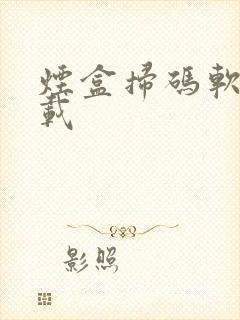 煙盒掃碼軟
載
影照